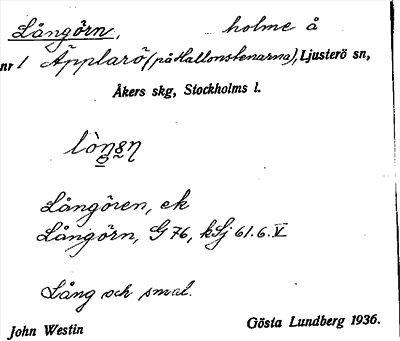 Långörn, holme å
nr 1 Äpplarö (på Hallonstenarna), Ljusterö sn,
Åkers skg, Stockholms l.
Långören, ek
Långörn, G 76, kSj 61.6.V
Lång och smal.
John Westin Gösta Lundberg 1936.